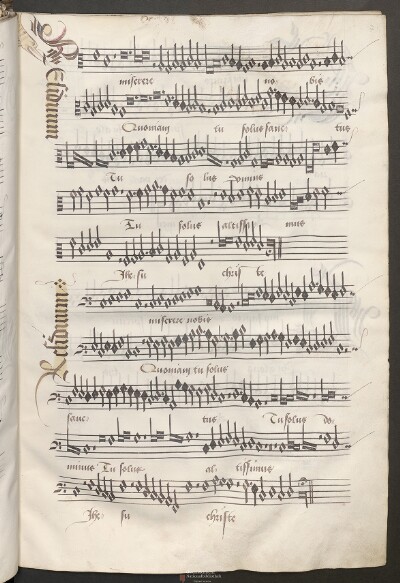 Residuum
miserere no- bis
Quoniam tu solus sanc- tus
Tu so lus Dominus
Tu solus altissi mus
Jhe- su chris te
Residuum
miserere nobis
Quoniam tu solus
sanc- tus Tu solus do-
minus Tu solus al- tissimus
Jhe- su christe